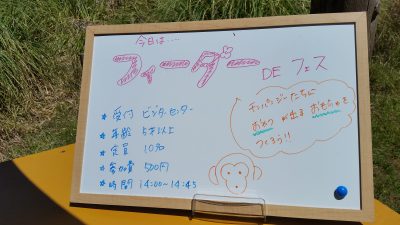 今日は....
フィーダー
DE フェス
★ 受付 ビジターセンター
★ 年齢 5才以上
★ 定員 10名
★ 参加費 500円
★ 時間 14:00〜14:45
チンパンジーたちに
おやつが出るおもちゃを
つくろう!!